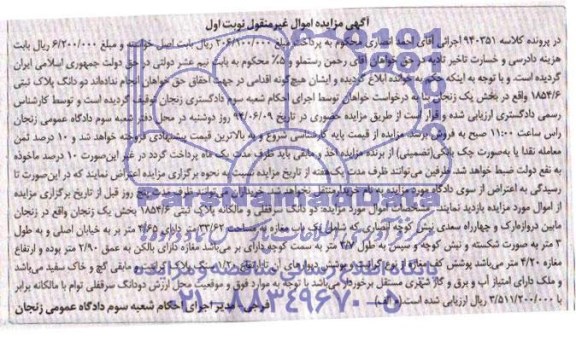 آگهی مزایده اموال غیرمنقول نوبت اول
در پرونده کلاسه ۹۴۰۳۵۱ اجرائی آقای احمد انصاری محکوم به پرداخت مبلغ ۲۰۶/۱۰۰/۰۰۰ ریال بابت اصل خواسته و مبلغ ۶/۲۰۰/۰۰۰ ریال بابت
هزینه دادرسی و خسارت تاخیر تادیه در حق خواهان آقای رحمن رستملو و ۵٪ محکوم به بابت نیم عشر دولتی در حق دولت جمهوری اسلامی ایران
گردیده است. و با توجه به اینکه حکم به خوانده ابلاغ گردیده و ایشان هیچگونه اقدامی در جهت احقاق حق خواهان انجام نداده‌اند دو دانگ پلاک ثبتی
۱۸۵۴/۶ واقع در بخش یک زنجان بنا به درخواست خواهان توسط اجرای احکام شعبه سوم دادگستری زنجان توقیف گردیده است و توسط کارشناس
رسمی دادگستری ارزیابی شده و قرار است از طریق مزایده حضوری در تاریخ ۹۴/۰۶/۰۹ روز دوشنبه در محل دفتر شعبه سوم دادگاه عمومی زنجان
راس ساعت ۱۱:۰۰ صبح به فروش برسد. مزایده از قیمت پایه کارشناسی شروع و به بالاترین قیمت پیشنهادی فروخته خواهد شد و ۱۰ درصد ثمن
معامله نقدا یا به‌صورت چک بانکی(تضمینی) از برنده مزایده اخذ و مابقی باید ظرف مدت یک ماه پرداخت گردد در غیر این‌صورت ۱۰ درصد ماخوذه
به نفع دولت ضبط خواهد شد. طرفین می‌توانند ظرف مدت یک هفته از تاریخ مزایده نسبت به نحوه برگزاری مزایده اعتراض نمایند که در این‌صورت تا
رسیدگی به اعتراض از سوی دادگاه مورد مزایده به نام خریدار منتقل نخواهد شد. خریداران می‌توانند ظرف روز قبل از تاریخ برگزاری مزایده
از اموال مورد مزایده بازدید نمایند. اموال مورد مزایده: دو دانگ سرقفلی و مالکانه پلاک ثبتی ۱۸۵۴/۶ بخش یک زنجان واقع در زنجان
مابین دروازه‌ارک و چهارراه سعدی نبش کوچه انصاری که شامل یک باب مغازه به مساحت ۳۳/۶۲ دارای ۲/۶۵ متر بر به خیابان اصلی و به طول
۳ متر به صورت شکسته و نبش کوچه و سپس به طول ۴/۷ متر به سمت کوچه دارای بر می‌باشد مغازه دارای بالکن به عمق ۲/۹۰ متر بوده و ارتفاع
مغازه ۴/۲۰ متر می‌باشد پوشش کف مغازه از نوع و پوشش دیوارهای آن تا ارتفاع مابقی گچ و خاک سفید می‌باشد
و ملک دارای امتیاز آب و برق و گاز شهری مستقل برخوردار می‌باشد با توجه به موارد فوق و موقعیت محل ارزش دودانگ سرقفلی توام با مالکانه برابر با
۳/۵۱۱/۲۰۰/۰۰۰ ریال ارزیابی شده است. (م الف) فرجی - مدیر اجرای احکام شعبه سوم دادگاه عمومی زنجان
ParsNamadData
پایگاه اطلاع رسانی مناقصه و مزایده
۰۲۱-۸۸۳۴۹۶۷۰-۵